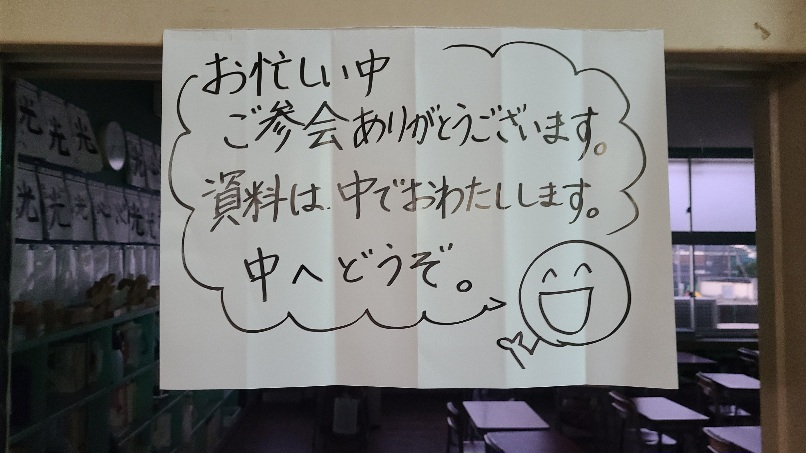 お忙しい中
ご参会ありがとうございます。
資料は、中でおわたしします。
中へどうぞ。
光
光
光
光
光